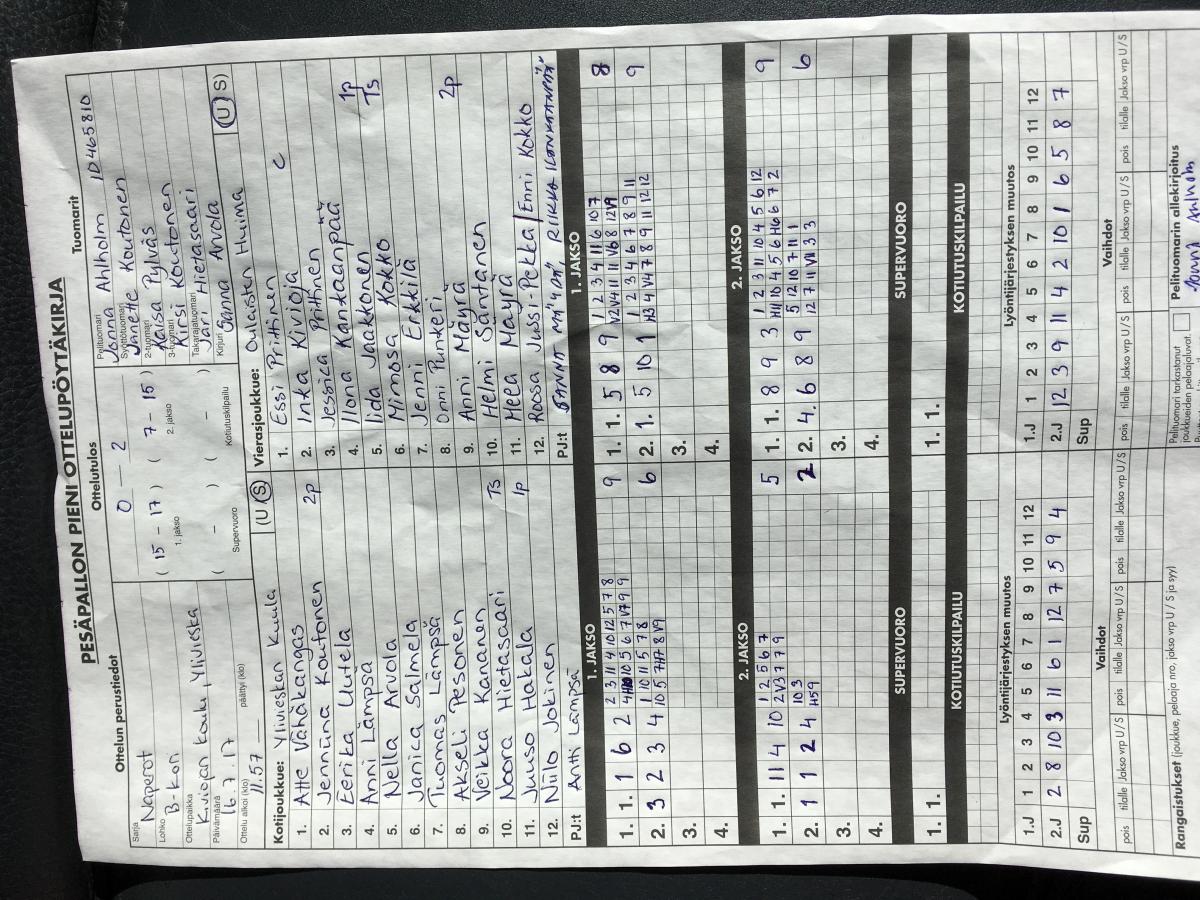 PESÄPALLON PIENI OTTELUPÖYTÄKIRJA
Ottelun perustiedot
Ottelutulos
Tuomarit
Sarja
Naperot
Lohko
B-Kon
Ottelupaikka
Kiviojan koulu, Ylivieska
Päivämäärä
16.7.17
Ottelu alkoi (klo) 11.57 päättyi (klo)
0 — 2
( 15 - 17 ) ( 7 - 15 )
1. jakso 2. jakso
( - ) ( - )
Supervuoro Kotiutuskilpailu
Pelituomari Jonna Ahlholm ID465810
Syöttötuomari Janette Koutonen
2-tuomari Kaisa Pylväs
3-tuomari Kirsi Koutonen
Takarajatuomari Jari Hietasaari
Kirjuri Sanna Arvola
Kotijoukkue: Ylivieskan Kuula (U S)
1. Atte Vähäkangas
2. Jenniina Koutonen 2p
3. Eerika Uutela
4. Anni Lämpsä
5. Nella Arvola
6. Janica Salmela
7. Tuomas Lämpsä
8. Akseli Pesonen
9. Veikka Kananen
10. Noora Hietasaari Ts
11. Juuso Hakala 1p
12. Niilo Jokinen
PJ:t Antti Lämpsä
Vierasjoukkue: Oulaisten Huima (U S)
1. Essi Prithnen C
2. Inka Kivioja
3. Jessica Prithnen
4. Ilona Kankaanpää 1p
5. Iida Jaakkonen Ts
6. Mimosa Kokko
7. Jenni Erkkilä
8. Onni Punkeri 2p
9. Anni Mäyrä
10. Helmi Säntänen
11. Heea Mäyrä
12. Roosa Jussi-Pekka / Enni Kokko
PJ:t SANNA MÄYRÄ, RIIKKA
1. JAKSO
1. 1. 1 6 2 2 3 11 4 10 12 5 7 8 9
2. 3 2 3 4 1 10 11 5 7 8 6
3.
4.
1. JAKSO
1. 1. 5 8 9 1 2 3 4 11 6 10 7 8
2. 1. 5 10 1 1 2 3 4 6 7 8 9 11 9
3.
4.
2. JAKSO
1. 1. 11 4 10 1 2 5 6 7 5
2. 1 1 2 4 10 3 2
3.
4.
2. JAKSO
1. 1. 8 9 3 1 2 3 11 10 4 5 6 12 9
2. 4. 6 8 9 5 12 10 7 11 1 6
3.
4.
SUPERVUORO
1. 1.
SUPERVUORO
1. 1.
KOTIUTUSKILPAILU
KOTIUTUSKILPAILU
Lyöntijärjestyksen muutos
1 2 3 4 5 6 7 8 9 10 11 12
1.J
2.J 2 8 10 3 11 6 1 12 7 5 9 4
Sup
Lyöntijärjestyksen muutos
1 2 3 4 5 6 7 8 9 10 11 12
1.J
2.J 12 3 9 11 4 2 10 1 6 5 8 7
Sup
Vaihdot
pois tilalle Jakso vrp U/S pois tilalle Jakso vrp U/S pois tilalle Jakso vrp U/S
Vaihdot
pois tilalle Jakso vrp U/S pois tilalle Jakso vrp U/S pois tilalle Jakso vrp U/S
Rangaistukset (joukkue, pelaaja nro, jakso vrp U / S ja syy)
Pelituomari tarkastanut
joukkueiden pelaajaluvat.
Pelituomarin allekirjoitus